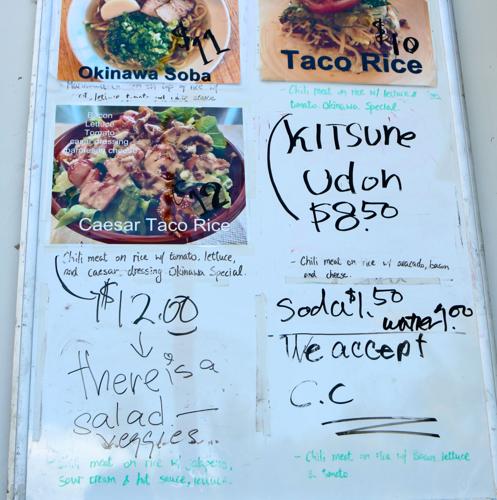 $11
Okinawa Soba
$10
Taco Rice
- Chili meat on rice w/ lettuce &
tomato. Okinawa Special.
Bacon
Lettuce
Tomato
caesar dressing
parmesan cheese
$12
Caesar Taco Rice
Chili meat on rice w/ tomato, lettuce,
and caesar dressing Okinawa Special.
$12.00
there is a
salad —
veggies..
Chili meat on rice w/ jalapeno,
sour cream & hot sauce, lettuce.
KITSUNE
Udon
$8.50
- Chili meat on rice w/ avocado, bacon
and cheese.
Soda $1.50
water 1.00
We accept
C.C
- Chili meat on rice w/ Bacon lettuce
& tomato.